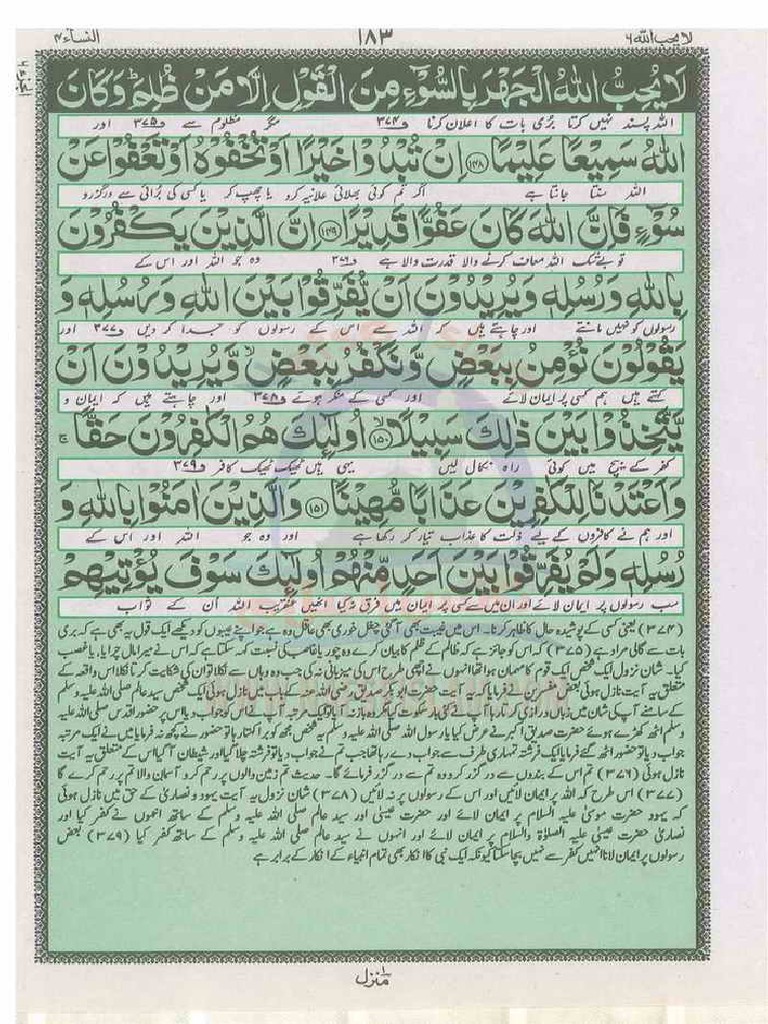 لا یحب اللہ ۶
۱۸۳
النساء ۴
لَا يُحِبُّ اللّٰهُ الْجَهْرَ بِالسُّوْٓءِ مِنَ الْقَوْلِ اِلَّا مَنْ ظُلِمَ وَكَانَ
اللہ پسند نہیں کرتا بری بات کا اعلان کرنا ف۳۷۴ مگر مظلوم سے ف۳۷۵ اور
اللّٰهُ سَمِيْعًا عَلِيْمًا ﴿۱۴۸﴾ اِنْ تُبْدُوْا خَيْرًا اَوْ تُخْفُوْهُ اَوْ تَعْفُوْا عَنْ
اللہ سنتا جانتا ہے اگر تم کوئی بھلائی علانیہ کرو یا چھپ کر یا کسی کی برائی سے درگزرو
سُوْٓءٍ فَاِنَّ اللّٰهَ كَانَ عَفُوًّا قَدِيْرًا ﴿۱۴۹﴾ اِنَّ الَّذِيْنَ يَكْفُرُوْنَ
تو بے شک اللہ معاف کرنے والا قدرت والا ہے ف۳۷۶ وہ جو اللہ اور اس کے
بِاللّٰهِ وَرُسُلِهٖ وَيُرِيْدُوْنَ اَنْ يُّفَرِّقُوْا بَيْنَ اللّٰهِ وَرُسُلِهٖ وَ
رسولوں کو نہیں مانتے اور چاہتے ہیں کہ اللہ سے اس کے رسولوں کو جدا کر دیں ف۳۷۷ اور
يَقُوْلُوْنَ نُؤْمِنُ بِبَعْضٍ وَّنَكْفُرُ بِبَعْضٍ وَّيُرِيْدُوْنَ اَنْ
کہتے ہیں ہم کسی پر ایمان لائے اور کسی کے منکر ہوئے ف۳۷۸ اور چاہتے ہیں کہ ایمان و
يَّتَّخِذُوْا بَيْنَ ذٰلِكَ سَبِيْلًا ﴿۱۵۰﴾ اُولٰٓئِكَ هُمُ الْكٰفِرُوْنَ حَقًّا
کفر کے بیچ میں کوئی راہ نکال لیں یہی ہیں ٹھیک ٹھیک کافر ف۳۷۹
وَاَعْتَدْنَا لِلْكٰفِرِيْنَ عَذَابًا مُّهِيْنًا ﴿۱۵۱﴾ وَالَّذِيْنَ اٰمَنُوْا بِاللّٰهِ وَ
اور ہم نے کافروں کے لیے ذلت کا عذاب تیار کر رکھا ہے اور وہ جو اللہ اور اس کے
رُسُلِهٖ وَلَمْ يُفَرِّقُوْا بَيْنَ اَحَدٍ مِّنْهُمْ اُولٰٓئِكَ سَوْفَ يُؤْتِيْهِمْ
سب رسولوں پر ایمان لائے اور ان میں سے کسی پر ایمان میں فرق نہ کیا انھیں عنقریب اللہ ان کے ثواب
(۳۷۴) یعنی کسی کے پوشیدہ حال کا ظاہر کرنا۔ اس میں غیبت بھی آگئی چغل خوری بھی عاقل وہ ہے جو اپنے عیبوں کو دیکھے ایک قول یہ بھی ہے کہ بری
بات سے گالی مراد ہے (۳۷۵) کہ اس کو جائز ہے کہ ظالم کے ظلم کا بیان کرے وہ چور یا غاصب کی نسبت کہہ سکتا ہے کہ اس نے میرا مال چرایا، یا غصب
کیا۔ شان نزول ایک شخص ایک قوم کا مہمان ہوا تھا انہوں نے اچھی طرح اس کی میزبانی نہ کی جب وہ وہاں سے نکلا تو ان کی شکایت کرتا نکلا اس واقعہ کے
متعلق یہ آیت نازل ہوئی بعض مفسرین نے فرمایا کہ یہ آیت حضرت ابوبکر صدیق رضی اللہ عنہ کے باب میں نازل ہوئی ایک شخص سید عالم صلی اللہ علیہ وسلم
کے سامنے آپ کی شان میں زباں درازی کرتا رہا آپ نے کئی بار سکوت کیا مگر وہ باز نہ آیا تو ایک مرتبہ آپ نے اس کو جواب دیا اس پر حضور اقدس صلی اللہ علیہ
وسلم اٹھ کھڑے ہوئے حضرت صدیق اکبر نے عرض کیا یا رسول اللہ صلی اللہ علیہ وسلم یہ شخص مجھ کو برا کہتا رہا تو حضور نے کچھ نہ فرمایا میں نے ایک مرتبہ
جواب دیا تو حضور اٹھ گئے فرمایا ایک فرشتہ تمہاری طرف سے جواب دے رہا تھا جب تم نے جواب دیا تو فرشتہ چلا گیا اور شیطان آگیا اس کے متعلق یہ آیت
نازل ہوئی (۳۷۶) تم اس کے بندوں سے درگزر کرو وہ تم سے درگزر فرمائے گا۔ حدیث تم زمین والوں پر رحم کرو آسمان والا تم پر رحم کرے گا
(۳۷۷) اس طرح کہ اللہ پر ایمان لائیں اور اس کے رسولوں پر نہ لائیں (۳۷۸) شان نزول یہ آیت یہود و نصاریٰ کے حق میں نازل ہوئی
کہ یہود حضرت موسیٰ علیہ السلام پر ایمان لائے اور حضرت عیسیٰ اور سید عالم صلی اللہ علیہ وسلم کے ساتھ انہوں نے کفر کیا اور
نصاریٰ حضرت عیسیٰ علیہ الصلوٰۃ والسلام پر ایمان لائے اور انہوں نے سید عالم صلی اللہ علیہ وسلم کے ساتھ کفر کیا (۳۷۹) بعض
رسولوں پر ایمان لانا انہیں کفر سے نہیں بچا سکتا کیونکہ ایک نبی کا انکار بھی تمام انبیاء کے انکار کے برابر ہے
منزل ۱